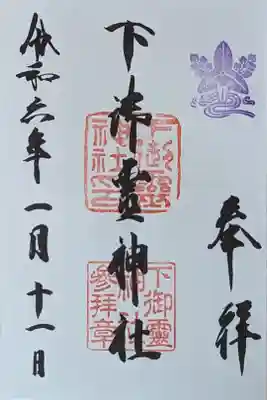 奉拝
下御霊神社
下御靈神社印
下御靈神社参拝章
令和六年一月十一日